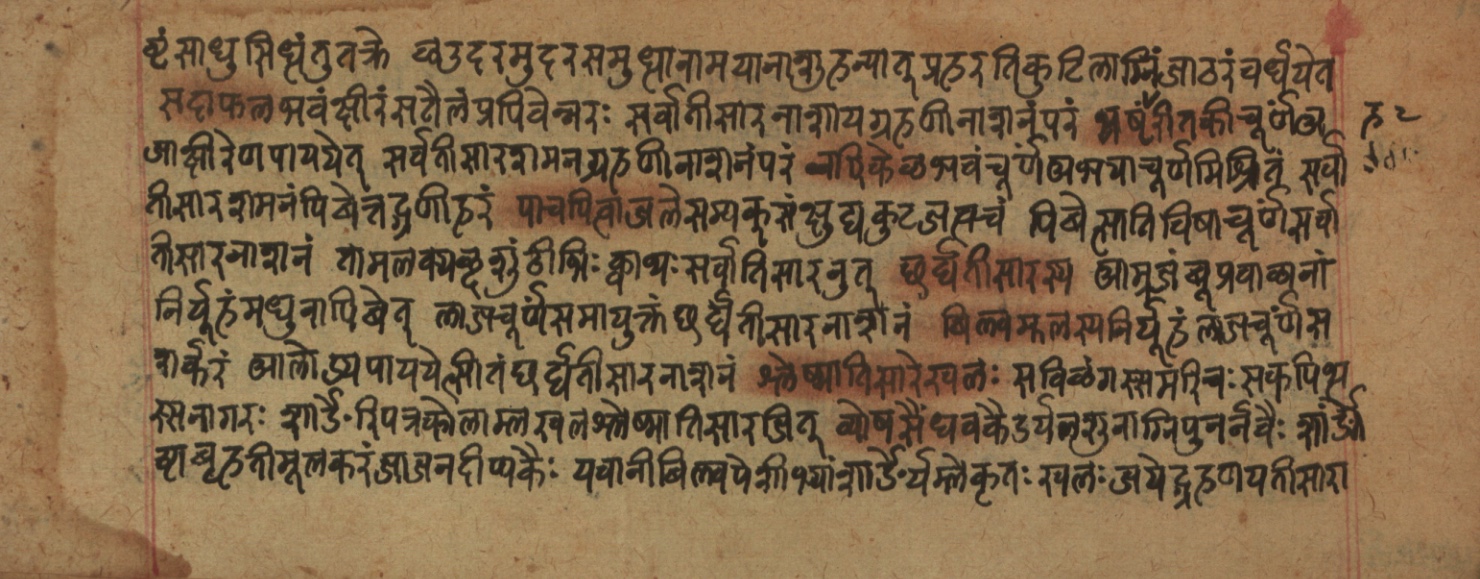 साधु सिधृंतु वक्रे उदरमुदरसमुथ्थानामयानाशुहन्यात् प्रहरति कुटिलाग्निं जाठरं वर्धयेत
सदाफलभवं क्षीरं सतैलं प्रपिवेन्नरः सर्वातीसारनाशाय ग्रहणीनाशनं परं भृष्टंहरीतकीचूर्णं अ
जाक्षीरेण पाययेत् सर्वतीसारशमनग्रहणीनाशनं परं भवंचूर्णं अभयाचूर्णमिश्रितं सर्वा
तीसारशमनं पिबेत्तद्ग्रणीहरं पाचयित्वा जले सम्यक् संक्षुद्य कुटजत्वचं पिबेत्सातिविषाचूर्णं सर्वा
तीसारनाशनं तामलक्यब्दशुंठीभिः क्वाथः सर्वातिसारनुत् छर्द्यतीसारस्य आम्रजंबूप्रवाळानां
निर्यूहं मधुना पिबेत् लाजचूर्णसमायुक्तं छर्द्यतीसारनाशनं बिल्वमूलस्य निर्यूहं लाजचूर्णं स
शर्करं आलोड्य पाययेत्सीतं छर्द्यतीसारनाशनं श्लेष्मातिसारे खलः सविळंगस्समरिचः सकपिथ्थ
स्सनागरः शार्ङेरिपत्रकोलाम्लखल श्लेष्मातिसारजित् व्योषसैंधवकैडर्यलशुनाग्निपुनर्नवैः
बृहतीमूलकरंजाजनदीप्यकैः यवानीबिल्वपेशीभ्यां शार्ङेर्यम्ले कृतः खलः जयेद्ग्रहण्यतीसारा